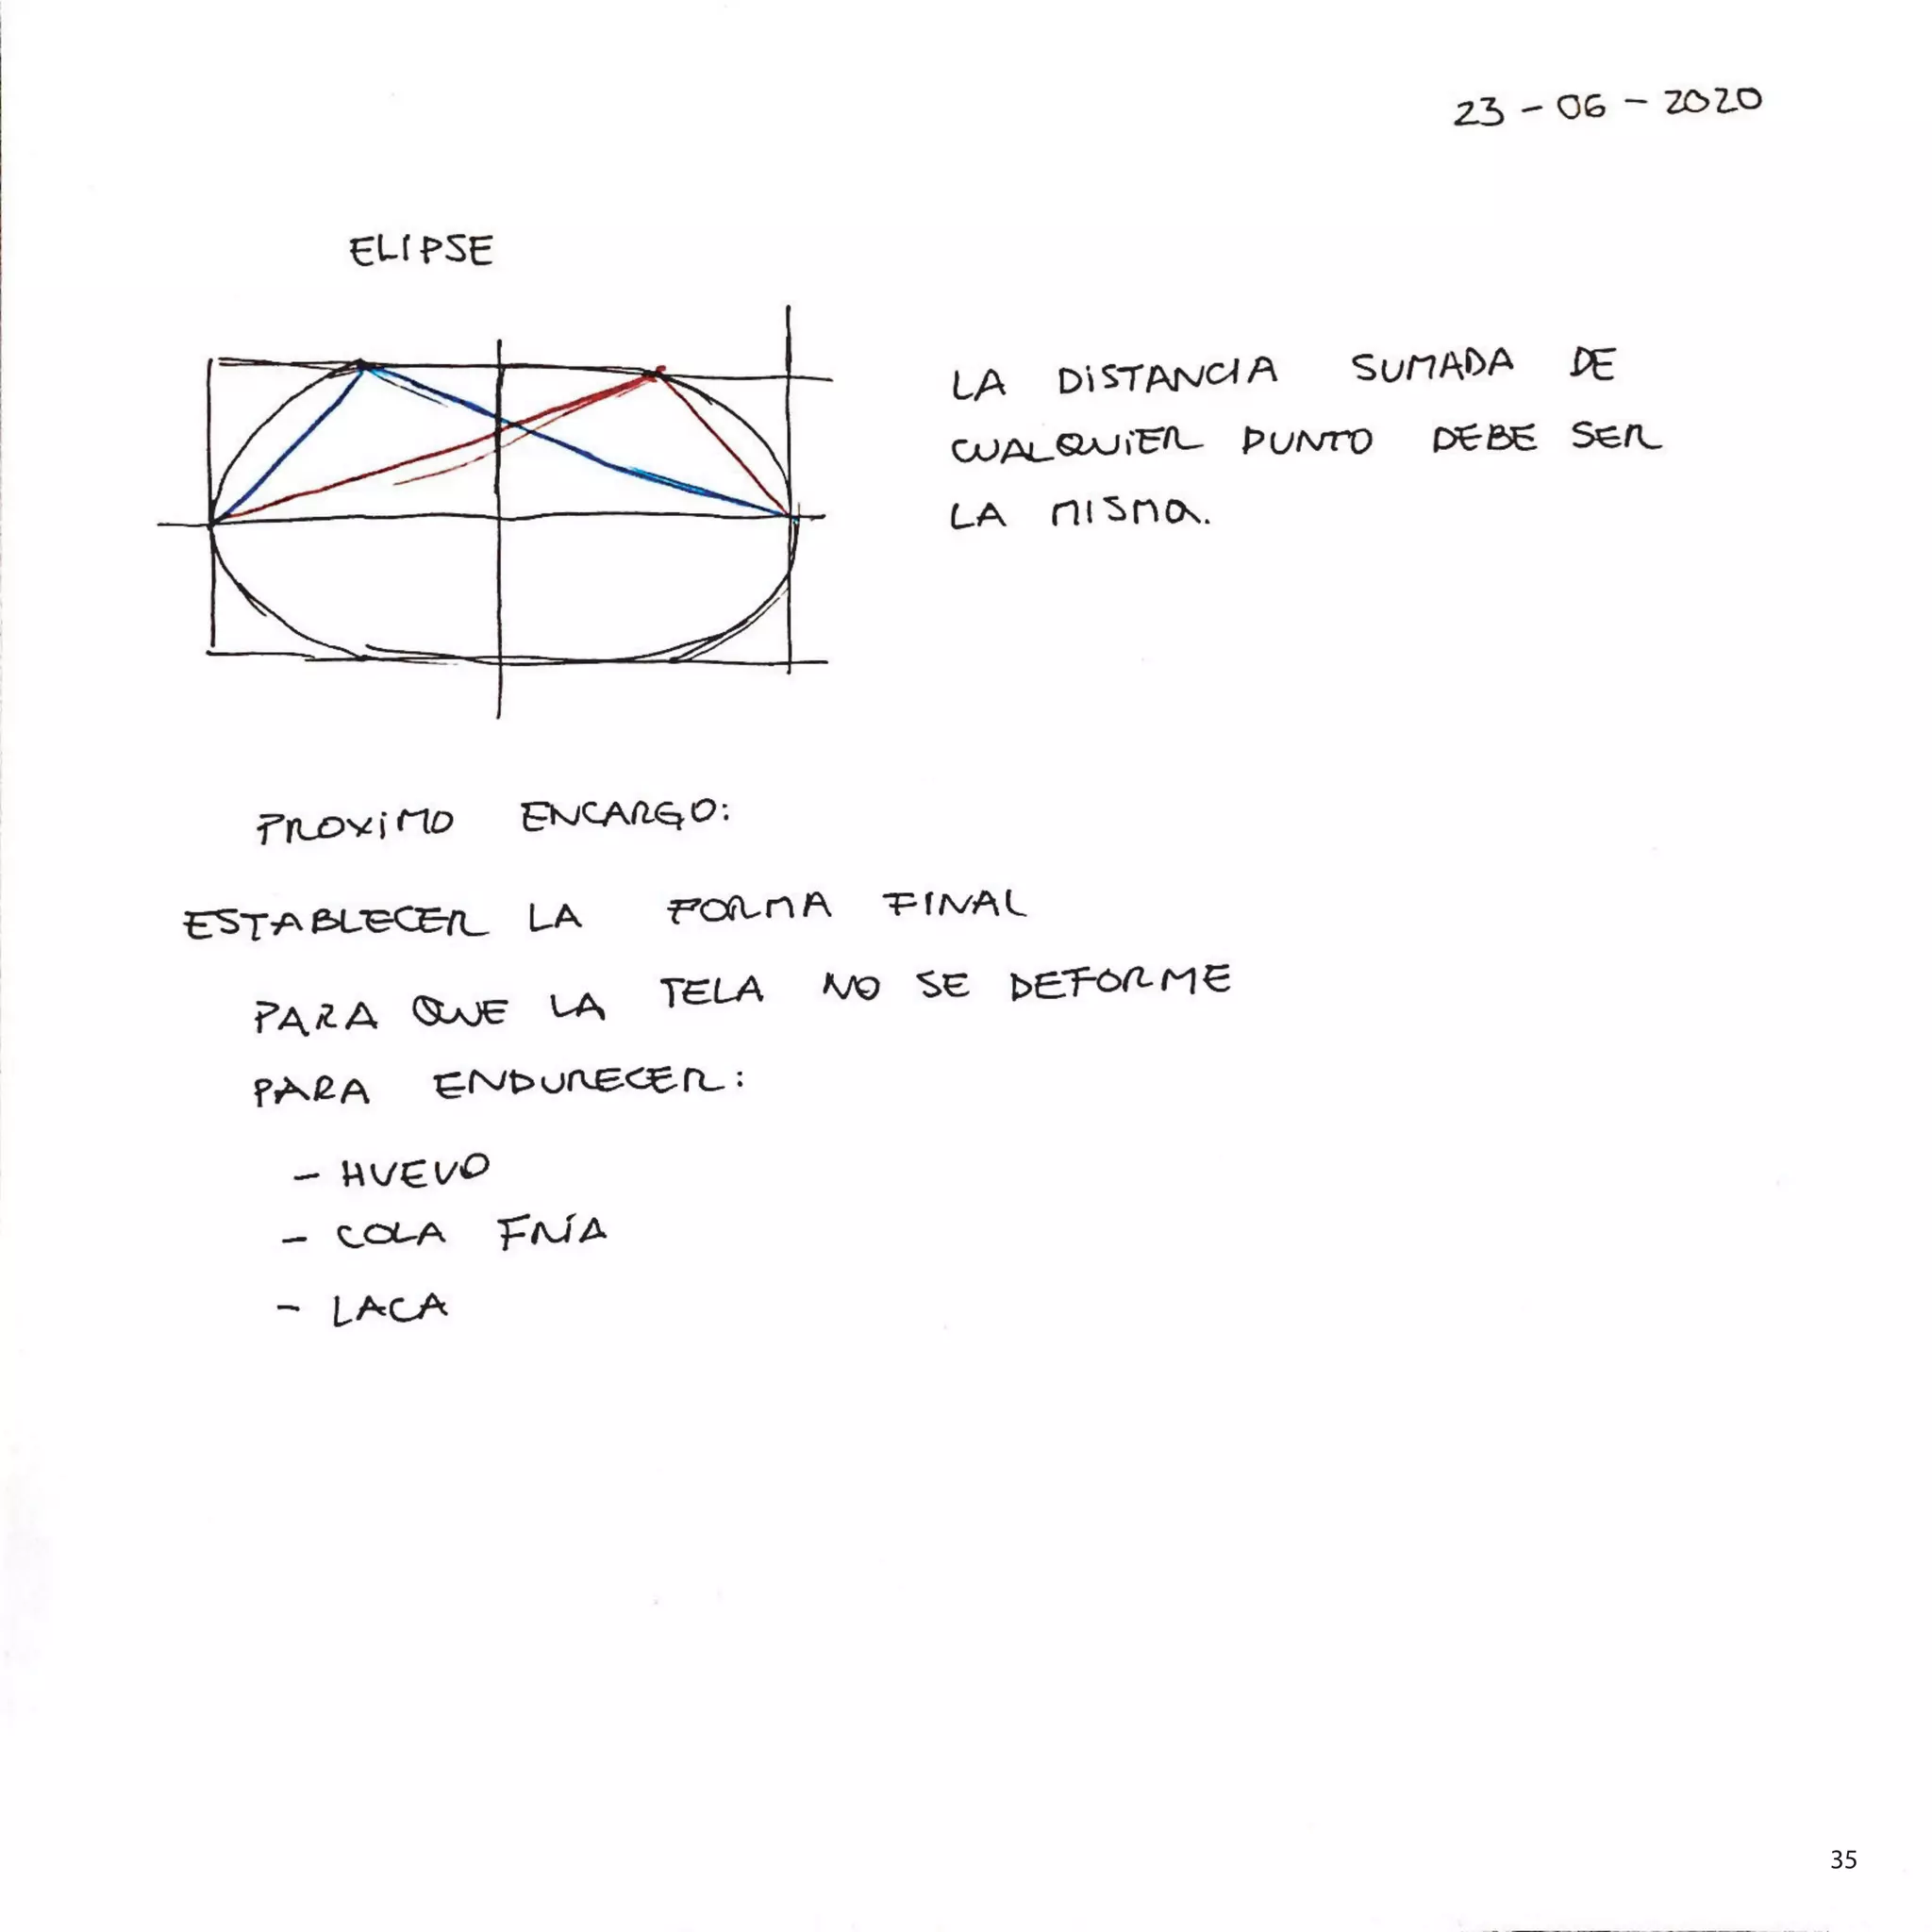 23 - 06 - 2020
ELIPSE
LA DISTANCIA SUMADA DE
CUALQUIER PUNTO DEBE SER
LA MISMA.
PROXIMO ENCARGO:
ESTABLECER LA FORMA FINAL
PARA QUE LA TELA NO SE DEFORME
PARA ENDURECER:
- HUEVO
- COLA FRÍA
- LACA
35